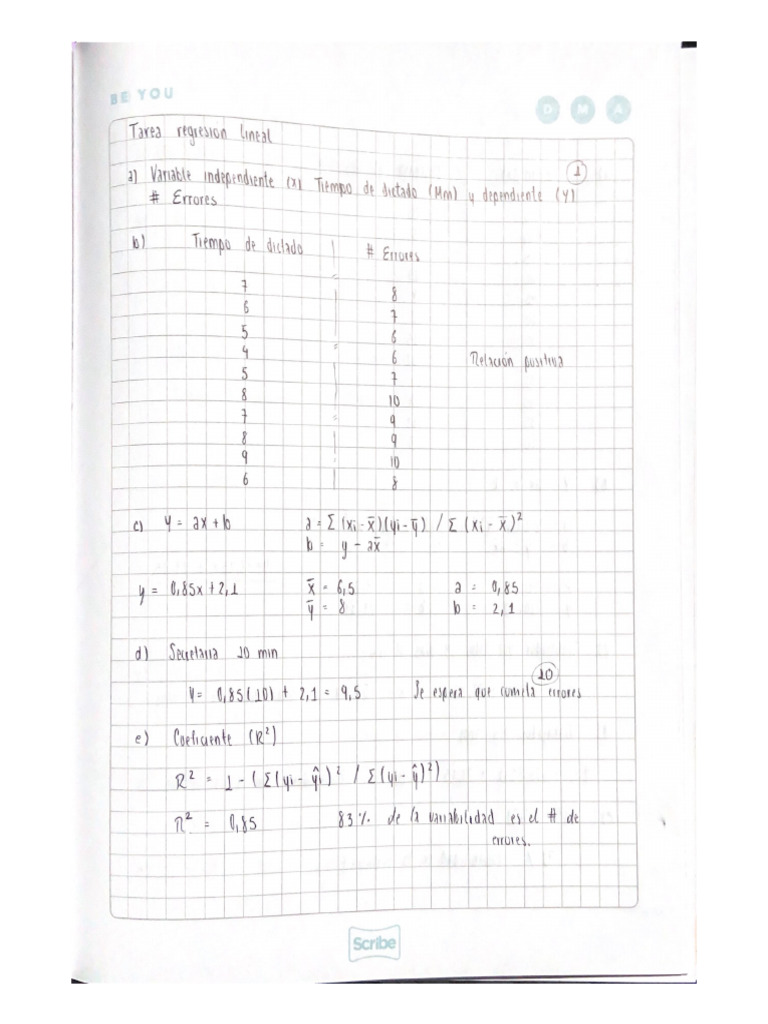 BE YOU
D M A
Tarea regresion lineal
1
a) Variable independiente (x) Tiempo de dictado (Min) y dependiente (Y)
# Errores
b) Tiempo de dictado # Errores
7 8
6 7
5 6
4 6 Relación positiva
5 7
8 10
7 9
8 9
9 10
6 8
c) y = ax + b a = Σ (xi - x̄)(yi - ȳ) / Σ (xi - x̄)²
b = y - ax̄
y = 0,85x + 2,1 x̄ = 6,5 a = 0,85
ȳ = 8 b = 2,1
d) Secretaria 10 min
10
y = 0,85(10) + 2,1 = 9,5 Se espera que cometa errores
e) Coeficiente (R²)
R² = 1 - (Σ(yi - ŷi)² / Σ(yi - ŷ)²)
R² = 0,85 83% de la variabilidad es el # de
errores.
Scribe